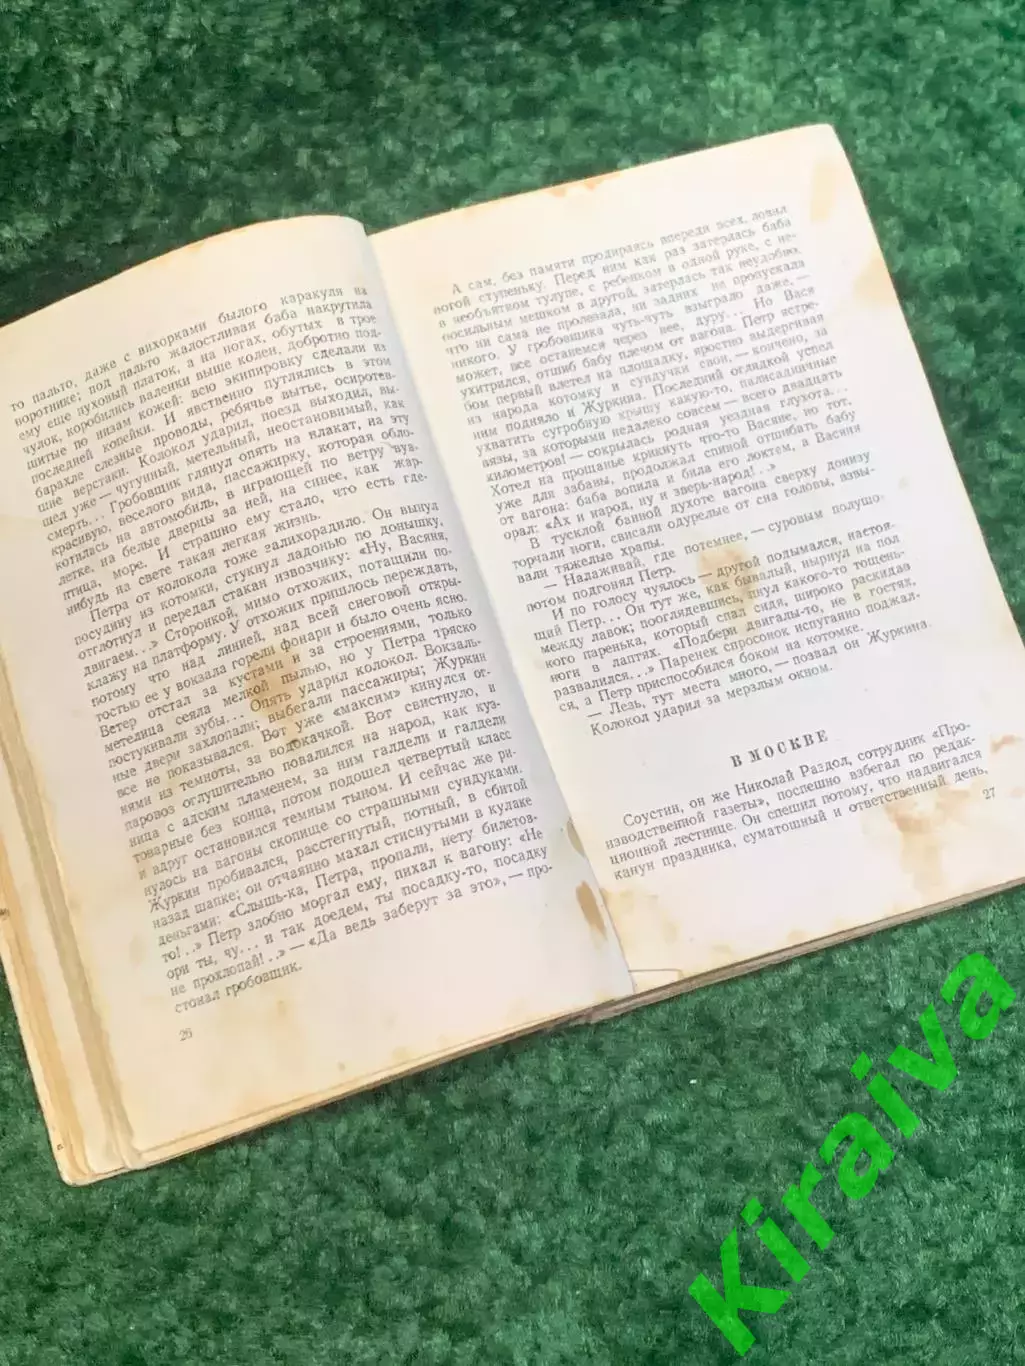 то пальто, даже с вихорками былого каракуля на
воротнике; под пальто жалостливая баба накрутила
ему еще пуховый платок, а на ногах, обутых в трое
чулок, коробились валенки выше колен, добротно под-
шитые по низам кожей: всю экипировку сделали из
последней копейки. И явственно путлялись в этом
барахле слезные проводы, ребячье вытье, осиротев-
шие верстаки. Колокол ударил, поезд выходил, вы-
шел уже — чугунный, метельный, неостановимый, как
смерть... Гробовщик глянул опять на плакат, на эту
красивую, веселого вида, пассажирку, которая обло-
котилась на автомобиль, в играющей по ветру вуа-
летке, на белые дверцы за ней, на синее, как жар-
птица, море. И страшно ему стало, что есть где-
нибудь на свете такая легкая жизнь.
Петра от колокола тоже залихорадило. Он вынул
посудину из котомки, стукнул ладонью по донышку,
отглотнул и передал стакан извозчику: «Ну, Васяня,
двигаем...» Сторонкой, мимо отхожих, потащили по-
клажу на платформу. У отхожих пришлось переждать,
потому что над линией, над всей снеговой откры-
тостью ее у вокзала горели фонари и было очень ясно.
Ветер отстал за кустами и за строениями, только
метелица сеяла мелкой пылью, но у Петра тряско
постукивали зубы... Опять ударил колокол. Вокзаль-
ные двери захлопали; выбегали пассажиры; Журкин
все не показывался. Вот уже «максим» кинулся ог-
нями из темноты, за водокачкой. Вот свистнуло, и
паровоз оглушительно повалился на народ, как куз-
ница с адским пламенем, за ним галдели и галдели
товарные без конца, потом подошел четвертый класс
и вдруг остановился темным тыном. И сейчас же ри-
нулось на вагоны скопище со страшными сундуками.
Журкин пробивался, расстегнутый, потный, в сбитой
назад шапке; он отчаянно махал стиснутыми в кулаке
деньгами: «Слышь-ка, Петра, пропали, нету билетов-
то!..» Петр злобно моргал ему, пихал к вагону: «Не
ори ты, чу... и так доедем, ты посадку-то, посадку
не прохлопай!..» — «Да ведь заберут за это», — про-
стонал гробовщик.
26
А сам, без памяти продираясь впереди всех, ловил
ногой ступеньку. Перед ним как раз затерлась баба
в необъятном тулупе, с ребенком в одной руке, с не-
посильным мешком в другой, затерлась так неудобно,
что ни сама не пролезала, ни задних не пропускала
никого. У гробовщика чуть-чуть взыграло даже, —
может, все останется через нее, дуру... Но Вася
ухитрился, отшиб бабу плечом от вагона. Петр ястре-
бом первый влетел на площадку, яростно выдергивая
из народа котомку и сундучки свои, — кончено, за
ним подняло и Журкина. Последней оглядкой успел
ухватить сугробную крышу какую-то, палисадничные
вязы, за которыми недалеко совсем — всего двадцать
километров! — сокрылась родная уездная глухота...
Хотел на прощанье крикнуть что-то Васяне, но тот,
уже для забавы, продолжал спиной отшибать бабу
от вагона: баба вопила и била его локтем, а Васяня
орал: «Ах и народ, ну и зверь-народ!..»
В тусклой банной духоте вагона сверху донизу
торчали ноги, свисали одурелые от сна головы, взвы-
вали тяжелые храпы.
— Налаживай, где потемнее, — суровым полушо-
потом подгонял Петр.
И по голосу чуялось — другой подымался, настоя-
щий Петр... Он тут же, как бывалый, нырнул на пол
между лавок; поглядевшись, пнул какого-то тощень-
кого паренька, который спал сидя, широко раскидав
ноги в лаптях. «Подбери двигалы-то, не в гостях,
развалился...» Паренек спросонок испуганно поджал-
ся, а Петр приспособился боком на котомке.
— Лезь, тут места много, — позвал он Журкина.
Колокол ударил за мерзлым окном.
В МОСКВЕ
Соустин, он же Николай Раздол, сотрудник «Про-
изводственной газеты», поспешно взбегал по редак-
ционной лестнице. Он спешил потому, что надвигался
канун праздника, суматошный и ответственный день,
27
Kiraiva